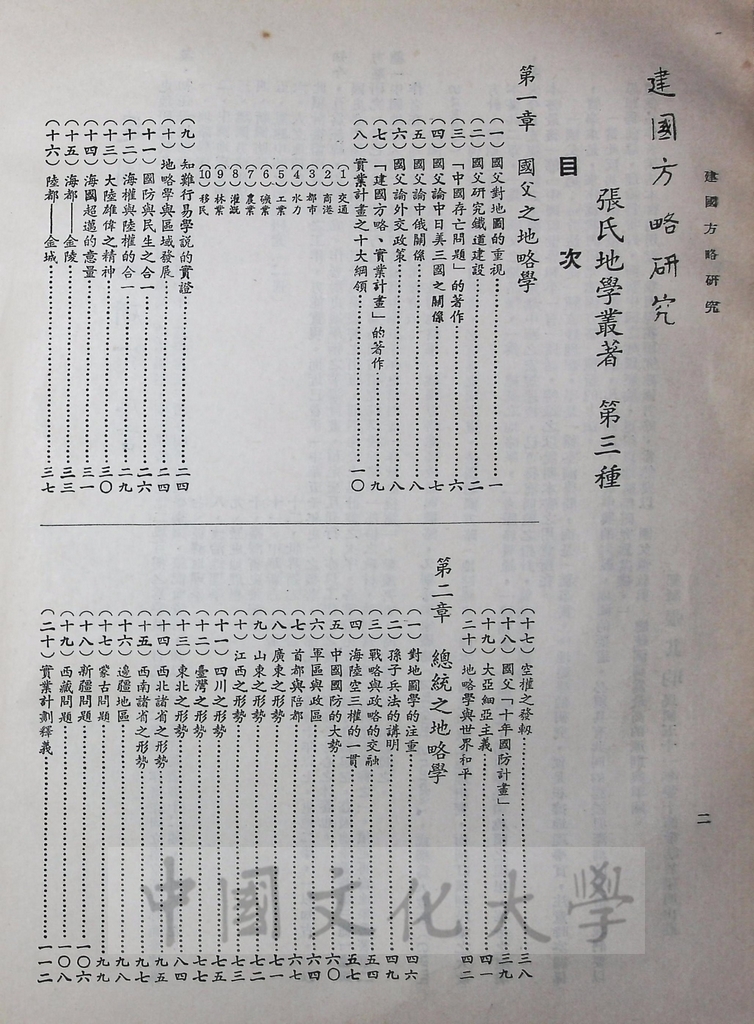 建國方略研究
二
建國方略研究
張氏地學叢著　第三種
目次
第一章　國父之地略學
（一）國父對地圖的重視……一
（二）國父研究鐵道建設……二
（三）「中國存亡問題」的著作……六
（四）國父論中日美三國之關係……七
（五）國父論中俄關係……八
（六）國父論外交政策……八
（七）「建國方略、實業計畫」的著作……九
（八）實業計畫之十大綱領……一〇
(1)交通
(2)商港
(3)都市
(4)水力
(5)工業
(6)礦業
(7)農業
(8)灌溉
(9)林業
(10)移民
（九）知難行易學説的實證……二四
（十）地略學與區域發展……二四
（十一）國防與民生之合一……二六
（十二）海權與陸權的合一……二九
（十三）大陸雄偉之精神……三〇
（十四）海國超邁的意量……三一
（十五）海都——金陵……三三
（十六）陸都——金城……三七
（十七）空權之發軔……三八
（十八）國父「十年國防計畫」……三九
（十九）大亞細亞主義……四一
（二十）地略學與世界和平……四二
第二章　總統之地略學
（一）對地圖學的注重……四六
（二）孫子兵法的講明……四九
（三）戰略與政略的交融……五四
（四）海陸空三權的一貫……五七
（五）中國國防的大勢……六〇
（六）軍區與政區……六四
（七）首都與陪都……六七
（八）廣東之形勢……七一
（九）山東之形勢……七二
（十）江西之形勢……七三
（十一）四川之形勢……七五
（十二）臺灣之形勢……七七
（十三）東北之形勢……八四
（十四）西北諸省之形勢……九五
（十五）西南諸省之形勢……九七
（十六）邊疆地區……九八
（十七）蒙古問題……九九
（十八）新疆問題……一〇六
（十九）西藏問題……一〇八
（二十）實業計劃釋義……一一二
中國文化大學